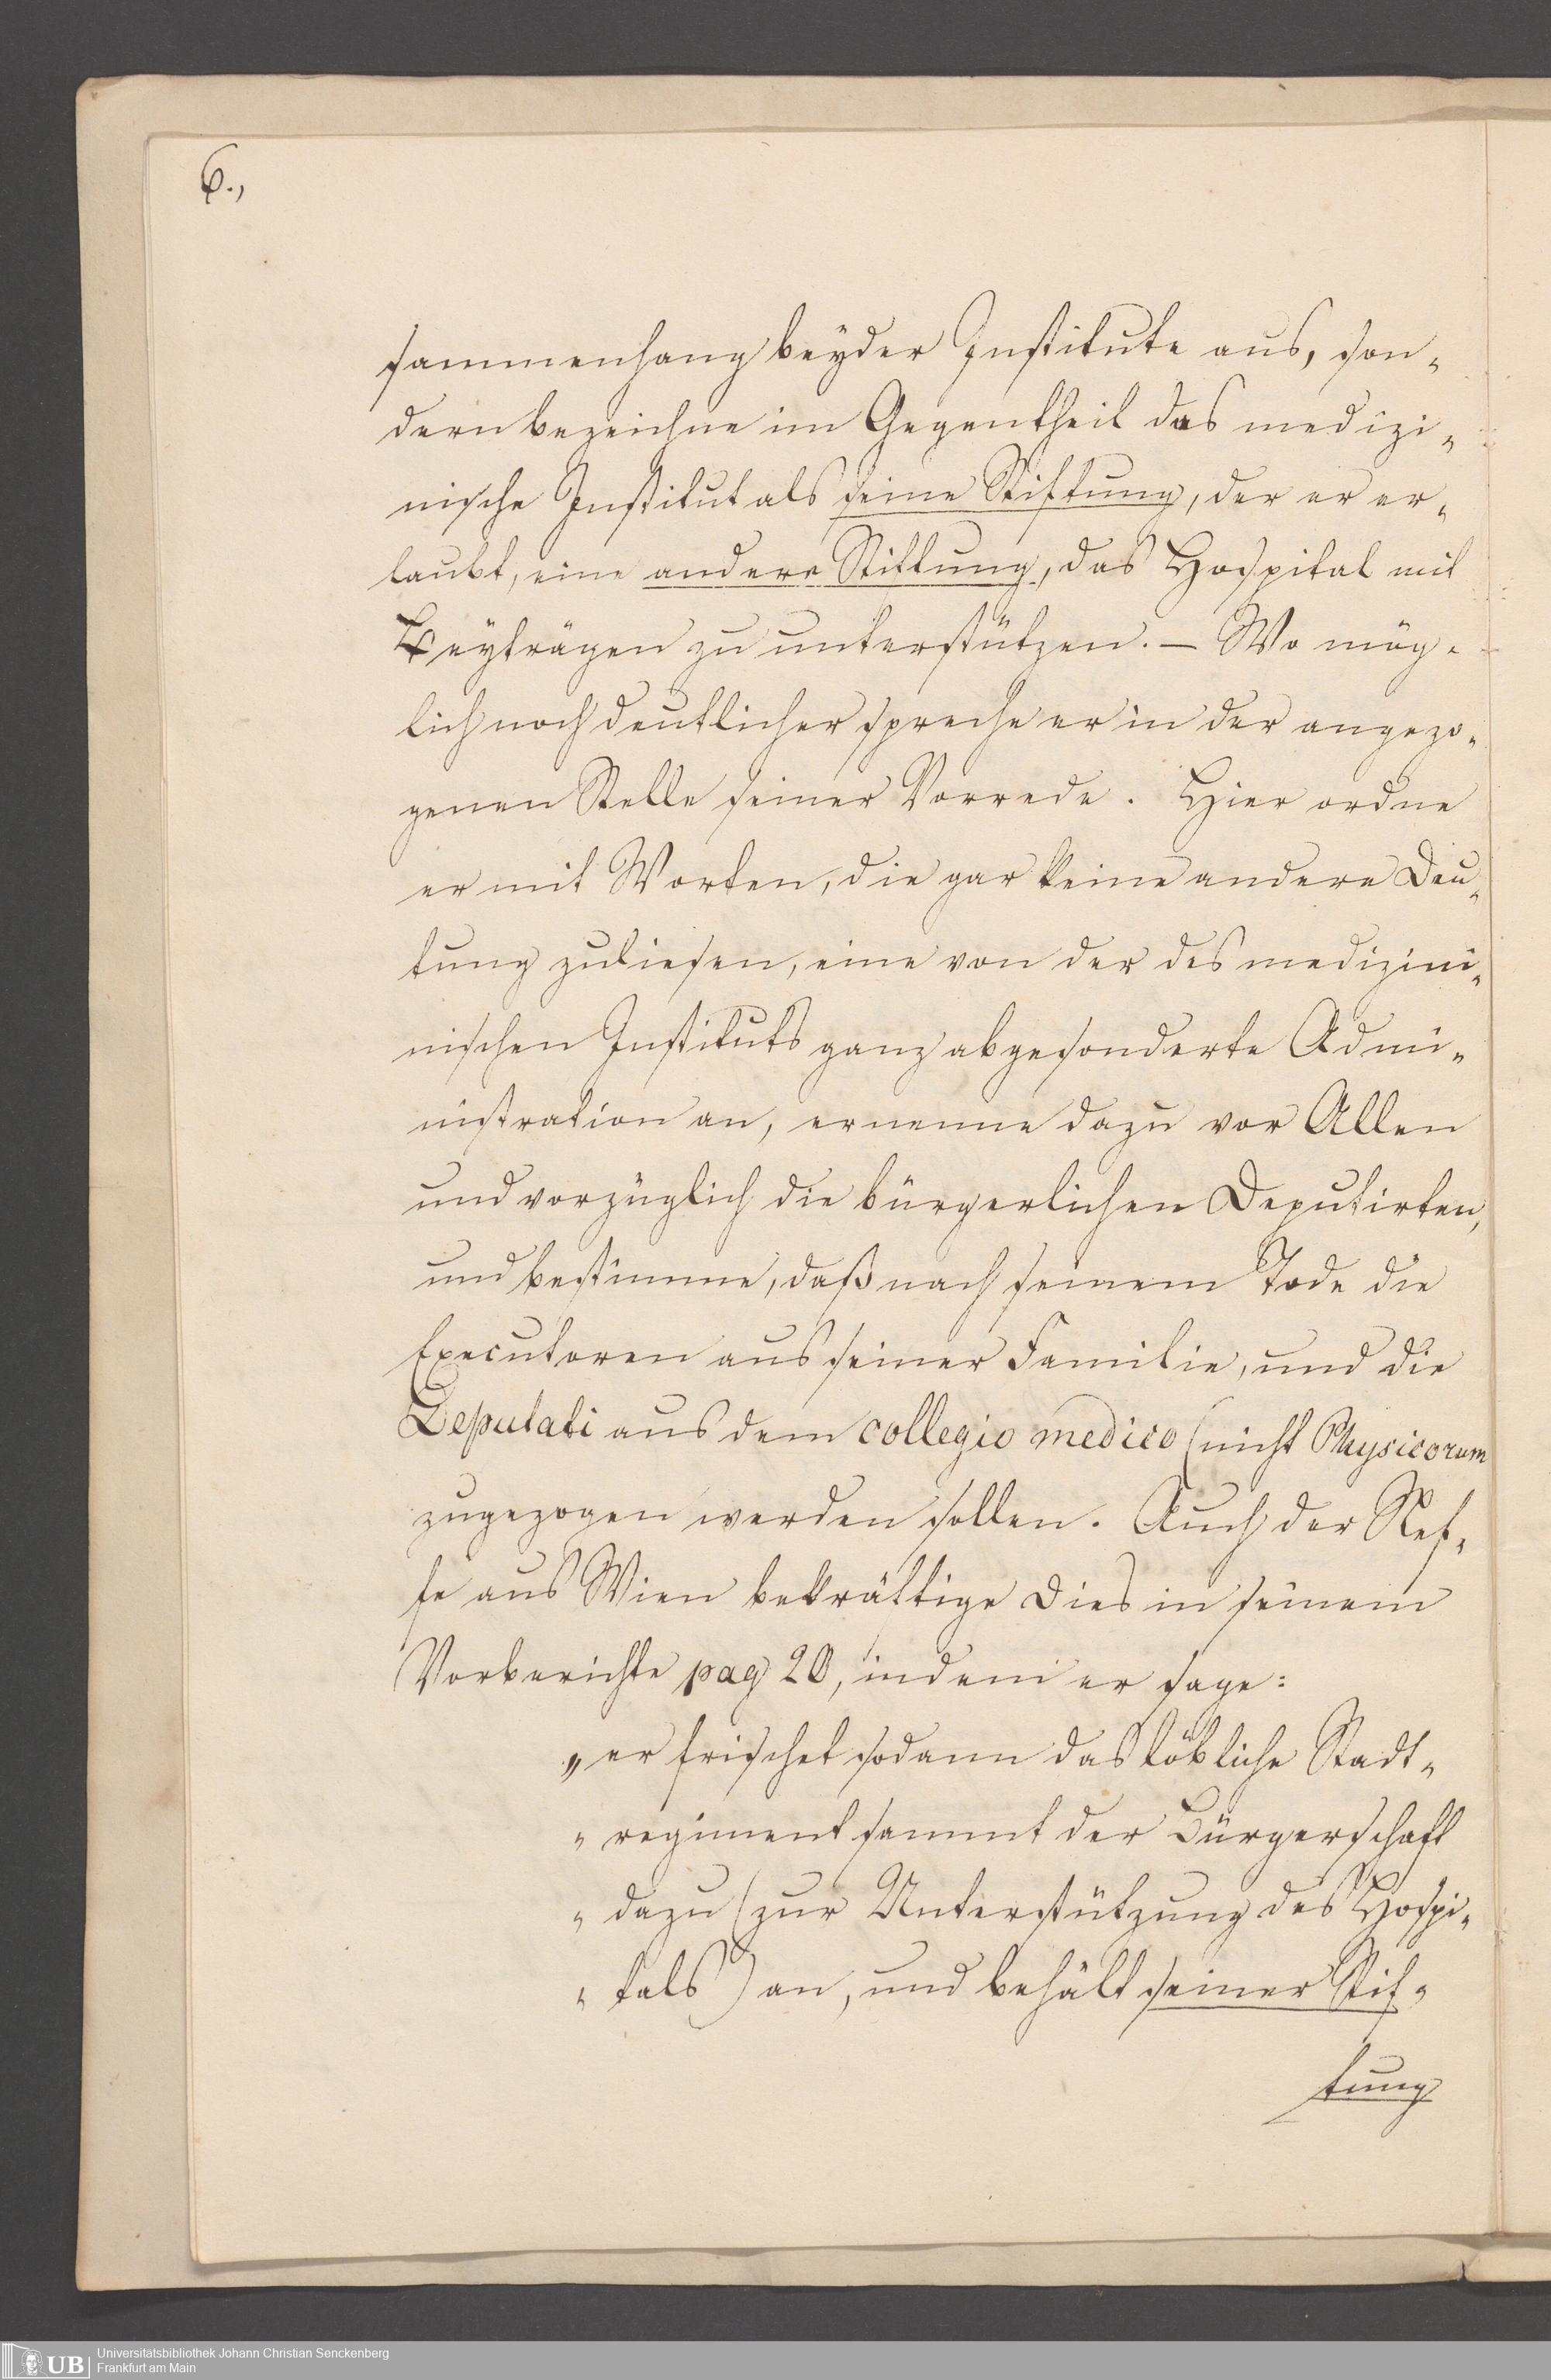 6.,
sammenhang beyder Institute aus, son„
dern bezeichne im Gegentheil das medizi„
nische Institut als seine Stiftung, der er er„
laubt, eine andere Stiftung, das Hospital mit
Beyträgen zu unterstützen. – Wo mög„
lich noch deutlicher spreche er in der angezo„
genen Stelle seiner Vorrede. Hier ordne
er mit Worten, die gar keine andere Deu„
tung zuliesen, eine von der des medizini„
nischen Instituts ganz abgesonderte Admi„
nistration an, ernenne dazu vor Allen
und vorzüglich die bürgerlichen Deputirten,
und bestimme, daß nach seinem Tode die
Executoren aus seiner Familie, und die
Deputati aus dem collegio medico (nicht Physicorum
zugezogen werden sollen. Auch der Nef„
fe aus Wien bekräftige dies in seinem
Vorberichte pag 20, indem er sage:
„er frischet sodann das löbliche Stadt„
„regiment sammt der Bürgerschaft
„dazu (zur Unterstützung des Hospi„
„tals) an, und behält seiner Stif„
tung
UB
Universitätsbibliothek Johann Christian Senckenberg
Frankfurt am Main